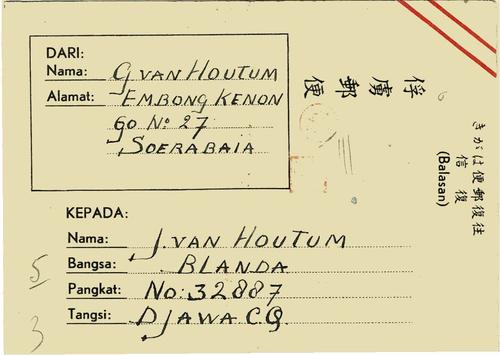 DARI:
Nama: G VAN HOUTUM
Alamat: EMBONG KENON
GO No 27
SOERABAIA
俘虜郵便
往復郵便はがき
復信
(Balasan)
KEPADA:
Nama: J. VAN HOUTUM
Bangsa: BLANDA
Pangkat: No: 32887
Tangsi: DJAWA C.Q.
5
3